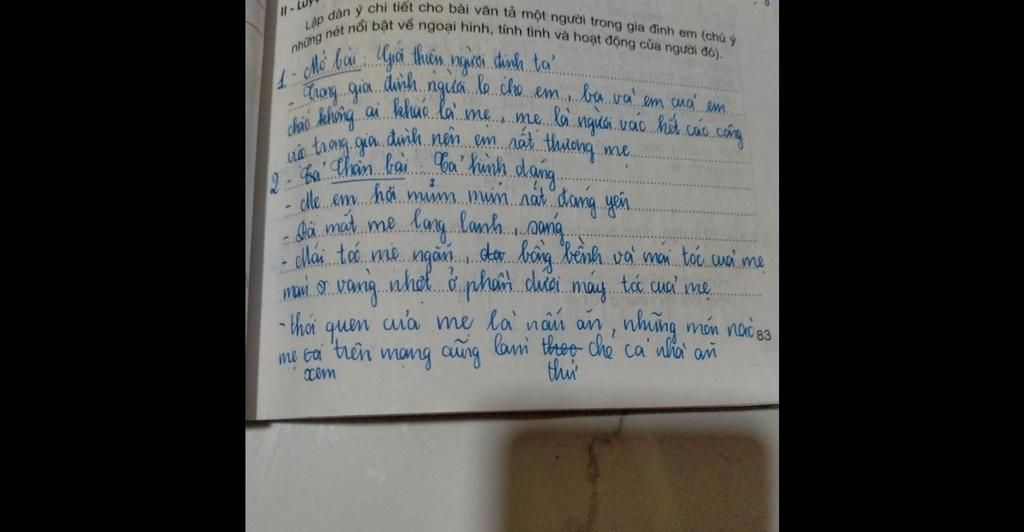 II - LUY
Lập dàn ý chi tiết cho bài văn tả một người trong gia đình em (chú ý
những nét nổi bật về ngoại hình, tính tình và hoạt động của người đó).
1 - Mở bài: Giới thiên người định tả
- Trong gia đình người lo cho em, ba và em cuả em
chắc không ai khác là mẹ, mẹ là người vác hết các công
việc trong gia đình nên em rất thương mẹ
2 - Tả Thân bài: Tả hình dáng
- Mẹ em hơi mủm mỉm rất đáng yên
- Đôi mắt mẹ long lanh, sáng
- Mái tóc mẹ ngắn, bồng bềnh và mái tóc cuả mẹ
màu vàng nhạt ở phần dưới máy tóc cuả mẹ
- thói quen của mẹ là nấu ăn, những món nào 83
mẹ trên mạng cũng làm theo cho cả nhà ăn
xem thử